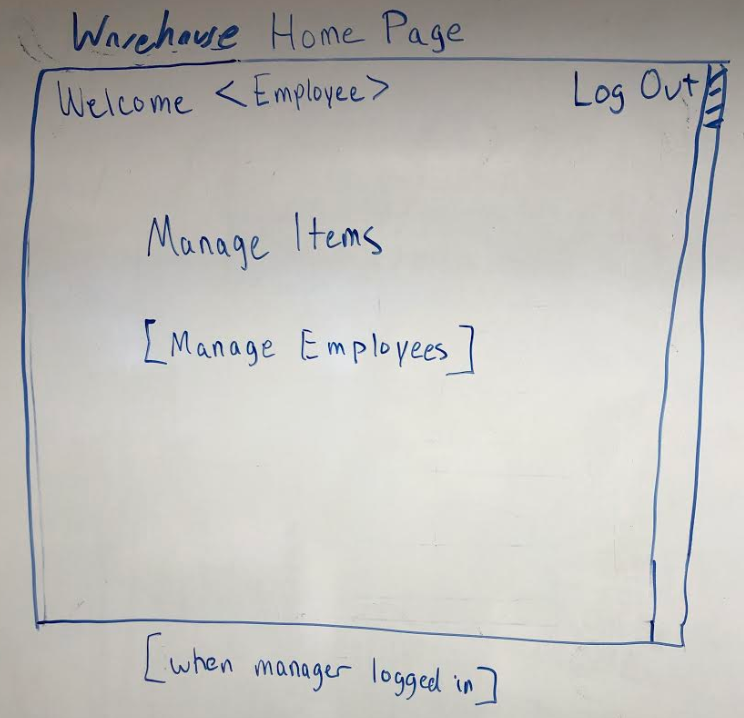 Warehouse Home Page
Welcome <Employee> Log Out
Manage Items
[Manage Employees]
[when manager logged in]